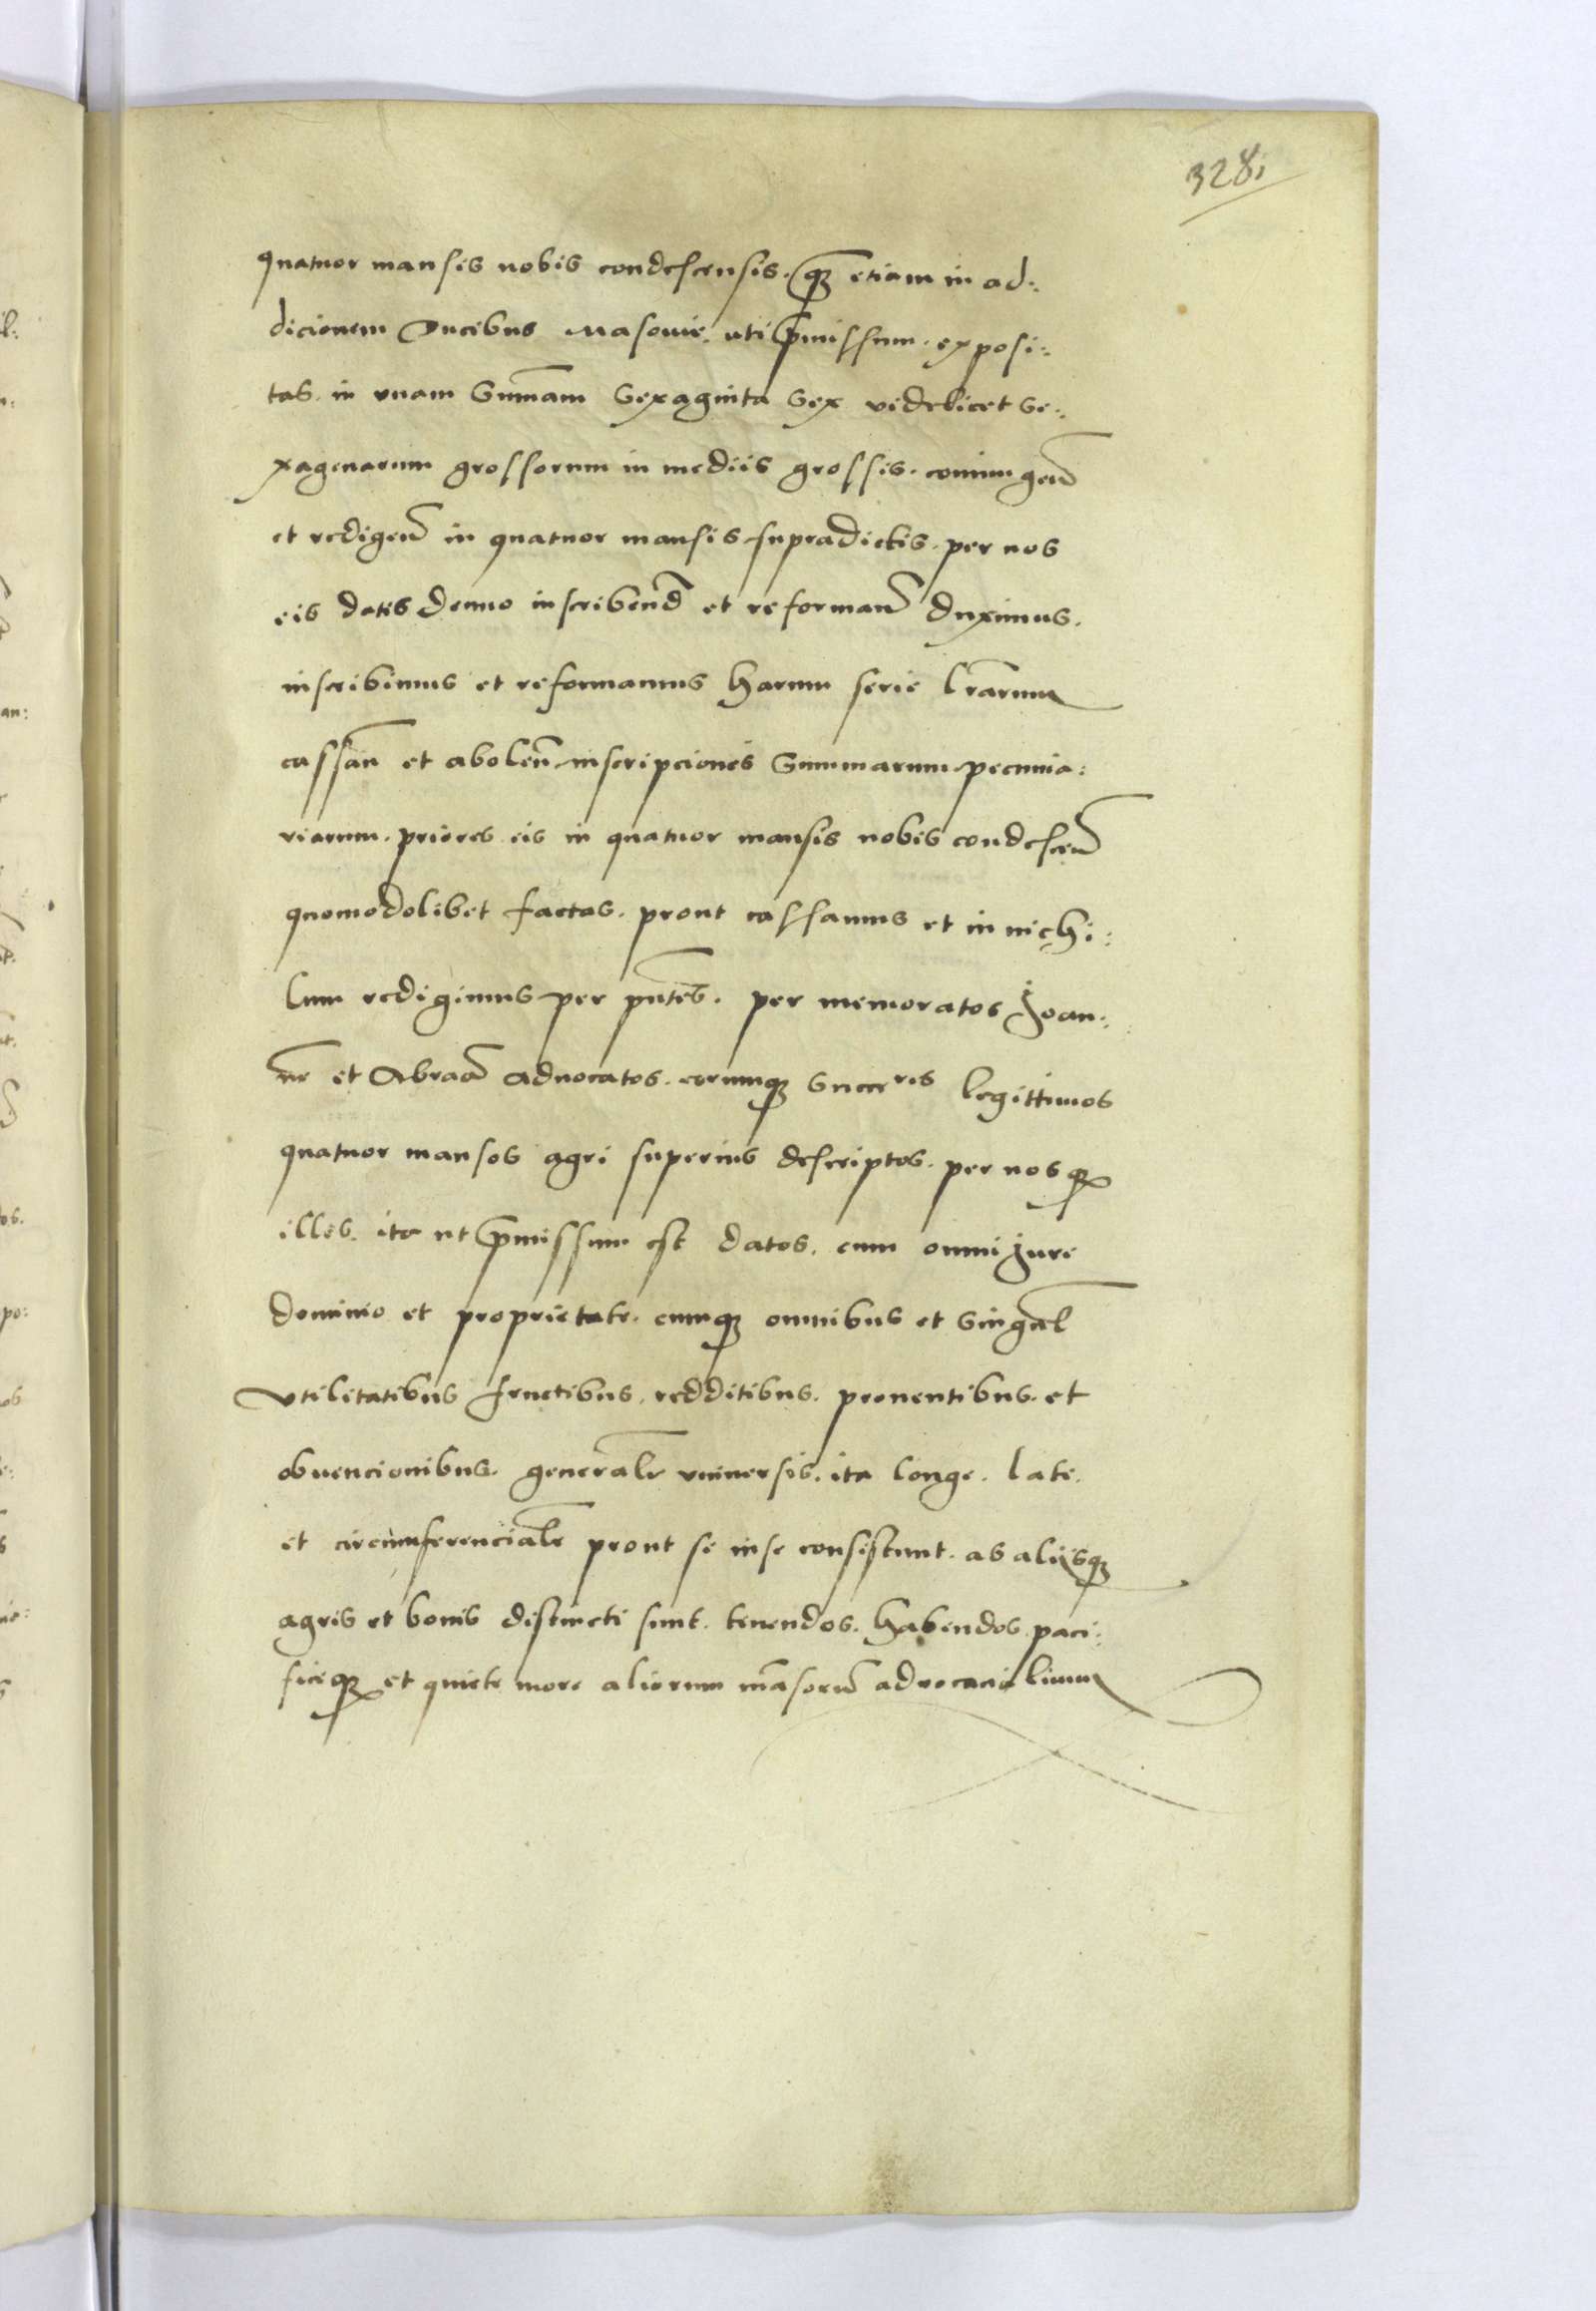 328
quatuor mansis nobis condescensis. q̄ꝫ etiam in ad:
dicionem Ducibus Masouie. uti p̄missum. exposi:
tas. in vnam Sum̄am Sexaginta Sex videlicet Se:
xagenarum grossorum in mediis grossis. coniungen̄
et redigen̄ in quatuor mansis supradictis. per nos
eis datis denuo inscribend̄ et reforman̄ duximus.
inscribimus et reformamus harum serie l̄rarum
cassan̄ et abolen̄ inscripciones Summarum pecunia:
riarum. priores eis in quatuor mansis nobis condescen̄
quomodolibet factas. prout cassamus et in nichi:
lum redigimus per pn̄tes. per memoratos Joan:
nē et Abraā aduocatos. eorumqꝫ Succ̄res legittimos
quatuor mansos agri superius descriptos. per nosqꝫ
illis. ita ut p̄missum est datos. cum omni jure
dominio et proprietate. cumqꝫ omnibus et Singul̄
vtilitatibus fructibus. redditibus. prouentibus. et
obuencionibus. generalr̄ vniuersis. ita longe. late.
et circumferencialr̄ prout si in se consistunt. ab aliisqꝫ
agris et bonis distincti sunt. tenendos. habendos paci:
ficeqꝫ et quiete more aliorum mā̄sorū aduocacialium